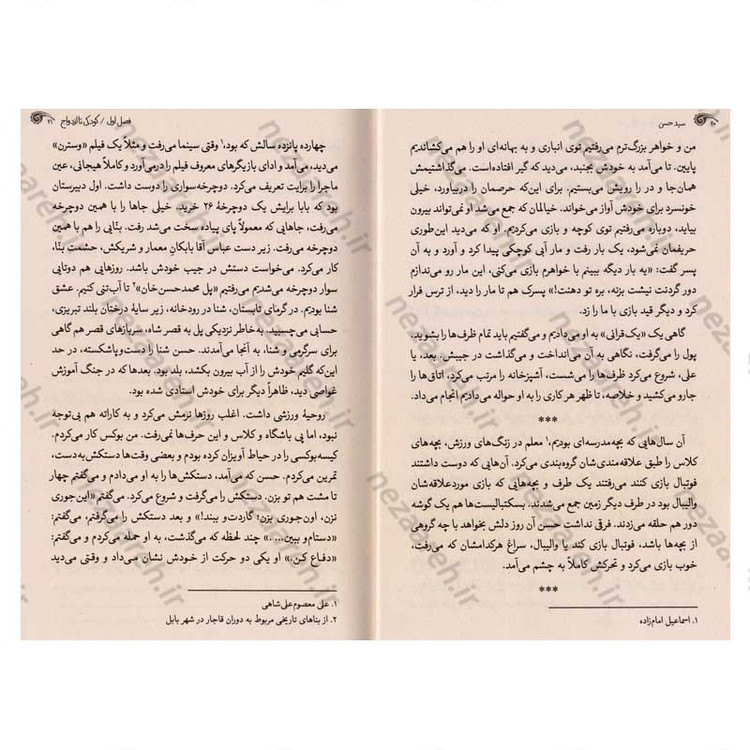 ۲۰ سید حسن
من و خواهر بزرگ‌ترم می‌رفتیم توی انباری و به بهانه‌ای او را هم می‌کشاندیم
پایین. تا می‌آمد به خودش بجنبد، می‌دید که گیر افتاده‌است. می‌گذاشتیمش
همان‌جا و در را رویش می‌بستیم. برای این‌که حرصمان را دربیاورد، خیلی
خونسرد برای خودش آواز می‌خواند. خیالمان که جمع می‌شد او نمی‌تواند بیرون
بیاید، دوباره می‌رفتیم توی کوچه و بازی می‌کردیم. او که می‌دید این‌طوری
حریفمان نمی‌شود، یک بار رفت و مار آبی کوچکی پیدا کرد و آورد و به آن
پسر گفت: «یه بار دیگه ببینم با خواهرم بازی می‌کنی، این مار رو می‌ندازم
دور گردنت نیشت بزنه، بره تو دهنت!» پسرک هم تا مار را دید، از ترس فرار
کرد و دیگر قید بازی با ما را زد.
گاهی یک «یک‌قرانی» به او می‌دادیم و می‌گفتیم باید تمام ظرف‌ها را بشوید.
پول را می‌گرفت، نگاهی به آن می‌انداخت و می‌گذاشت در جیبش. بعد، یا
علی، شروع می‌کرد ظرف‌ها را می‌شست، آشپزخانه را مرتب می‌کرد، اتاق‌ها را
جارو می‌کشید و خلاصه، تا ظهر هر کاری را به او حواله می‌دادیم انجام می‌داد.
***
آن سال‌هایی که بچه‌مدرسه‌ای بودیم،۱ معلم در زنگ‌های ورزش، بچه‌های
کلاس را طبق علاقه‌مندی‌شان گروه‌بندی می‌کرد. آن‌هایی که دوست داشتند
فوتبال بازی کنند می‌رفتند یک طرف و بچه‌هایی که بازی موردعلاقه‌شان
والیبال بود در طرف دیگر زمین جمع می‌شدند. بسکتبالیست‌ها هم یک گوشه
دور هم حلقه می‌زدند. فرقی نداشت حسن آن روز دلش بخواهد با چه گروهی
از بچه‌ها باشد، فوتبال بازی کند یا والیبال، سراغ هرکدامشان که می‌رفت،
خوب بازی می‌کرد و تحرکش کاملاً به چشم می‌آمد.
***
۱. اسماعیل امام‌زاده
فصل اول / کودکی تا ازدواج ۲۱
چهارده پانزده سالش که بود،۱ وقتی سینما می‌رفت و مثلاً یک فیلم «وسترن»
می‌دید، می‌آمد و ادای بازیگرهای معروف فیلم را درمی‌آورد و کاملاً هیجانی، عین
ماجرا را برایت تعریف می‌کرد. دوچرخه‌سواری را دوست داشت. اول دبیرستان
بود که بابا برایش یک دوچرخهٔ ۲۶ خرید. خیلی جاها را با همین دوچرخه
می‌رفت، جاهایی که معمولاً پای پیاده سخت می‌شد رفت. بنّایی را هم با همین
دوچرخه می‌رفت. زیر دست عباس آقا بابکانِ معمار و شریکش، حشمت بنّا،
کار می‌کرد. می‌خواست دستش در جیب خودش باشد. روزهایی هم دوتایی
سوار دوچرخه می‌شدیم می‌رفتیم «پل محمدحسن‌خان»۲ تا آب‌تنی کنیم. عشق
شنا بودیم. در گرمای تابستان، شنا در رودخانه، زیر سایهٔ درختان بلند تبریزی،
حسابی می‌چسبید. به خاطر نزدیکی پل به قصر شاه، سربازهای قصر هم گاهی
برای سرگرمی و شنا، به آنجا می‌آمدند. حسن شنا را دست‌وپاشکسته، در حد
این‌که گلیم خودش را از آب بیرون بکشد، بلد بود. بعدها که در جنگ آموزش
غواصی دید، ظاهراً دیگر برای خودش استادی شده بود.
روحیهٔ ورزشی داشت. اغلب روزها نرمش می‌کرد و به کاراته هم بی‌توجه
نبود، اما پی باشگاه و کلاس و این حرف‌ها نمی‌رفت. من بوکس کار می‌کردم.
کیسه‌بوکسی را در حیاط آویزان کرده بودم و بعضی وقت‌ها دستکش به‌دست،
تمرین می‌کردم. حسن که می‌آمد، دستکش‌ها را به او می‌دادم و می‌گفتم چهار
تا مشت هم تو بزن. دستکش را می‌گرفت و شروع می‌کرد. می‌گفتم «این‌جوری
نزن، اون‌جوری بزن؛ گاردت‌و ببند!» و بعد دستکش را می‌گرفتم، می‌گفتم:
«دستام‌و ببین....» چند لحظه که می‌گذشت، به او حمله می‌کردم و می‌گفتم:
«دفاع کن.» او یکی دو حرکت از خودش نشان می‌داد و وقتی می‌دید
۱. علی معصوم‌علی‌شاهی
۲. از بناهای تاریخی مربوط به دوران قاجار در شهر بابل
nezaareh.ir